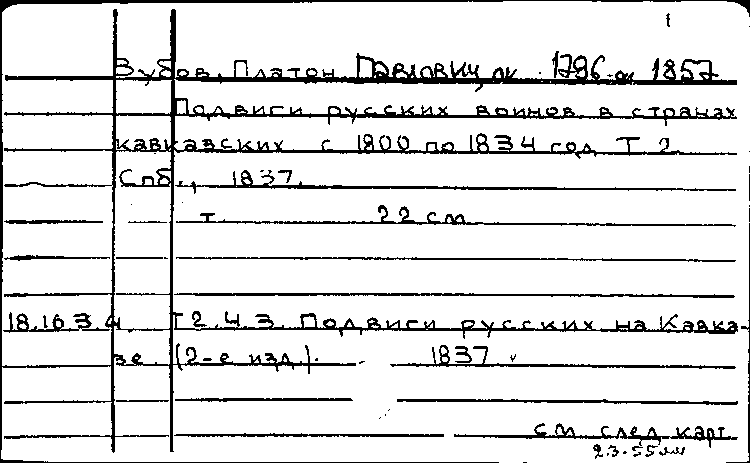 1
Зубов, Платон Павлович, ок. 1796-ок 1857
Подвиги русских воинов в странах
кавказских с 1800 по 1834 год Т 2
Спб., 1837.
т. 22 см
18.16.3.4. Т 2.ч.3. Подвиги русских на Кавка-
зе. (2-е изд.). 1837
см след карт